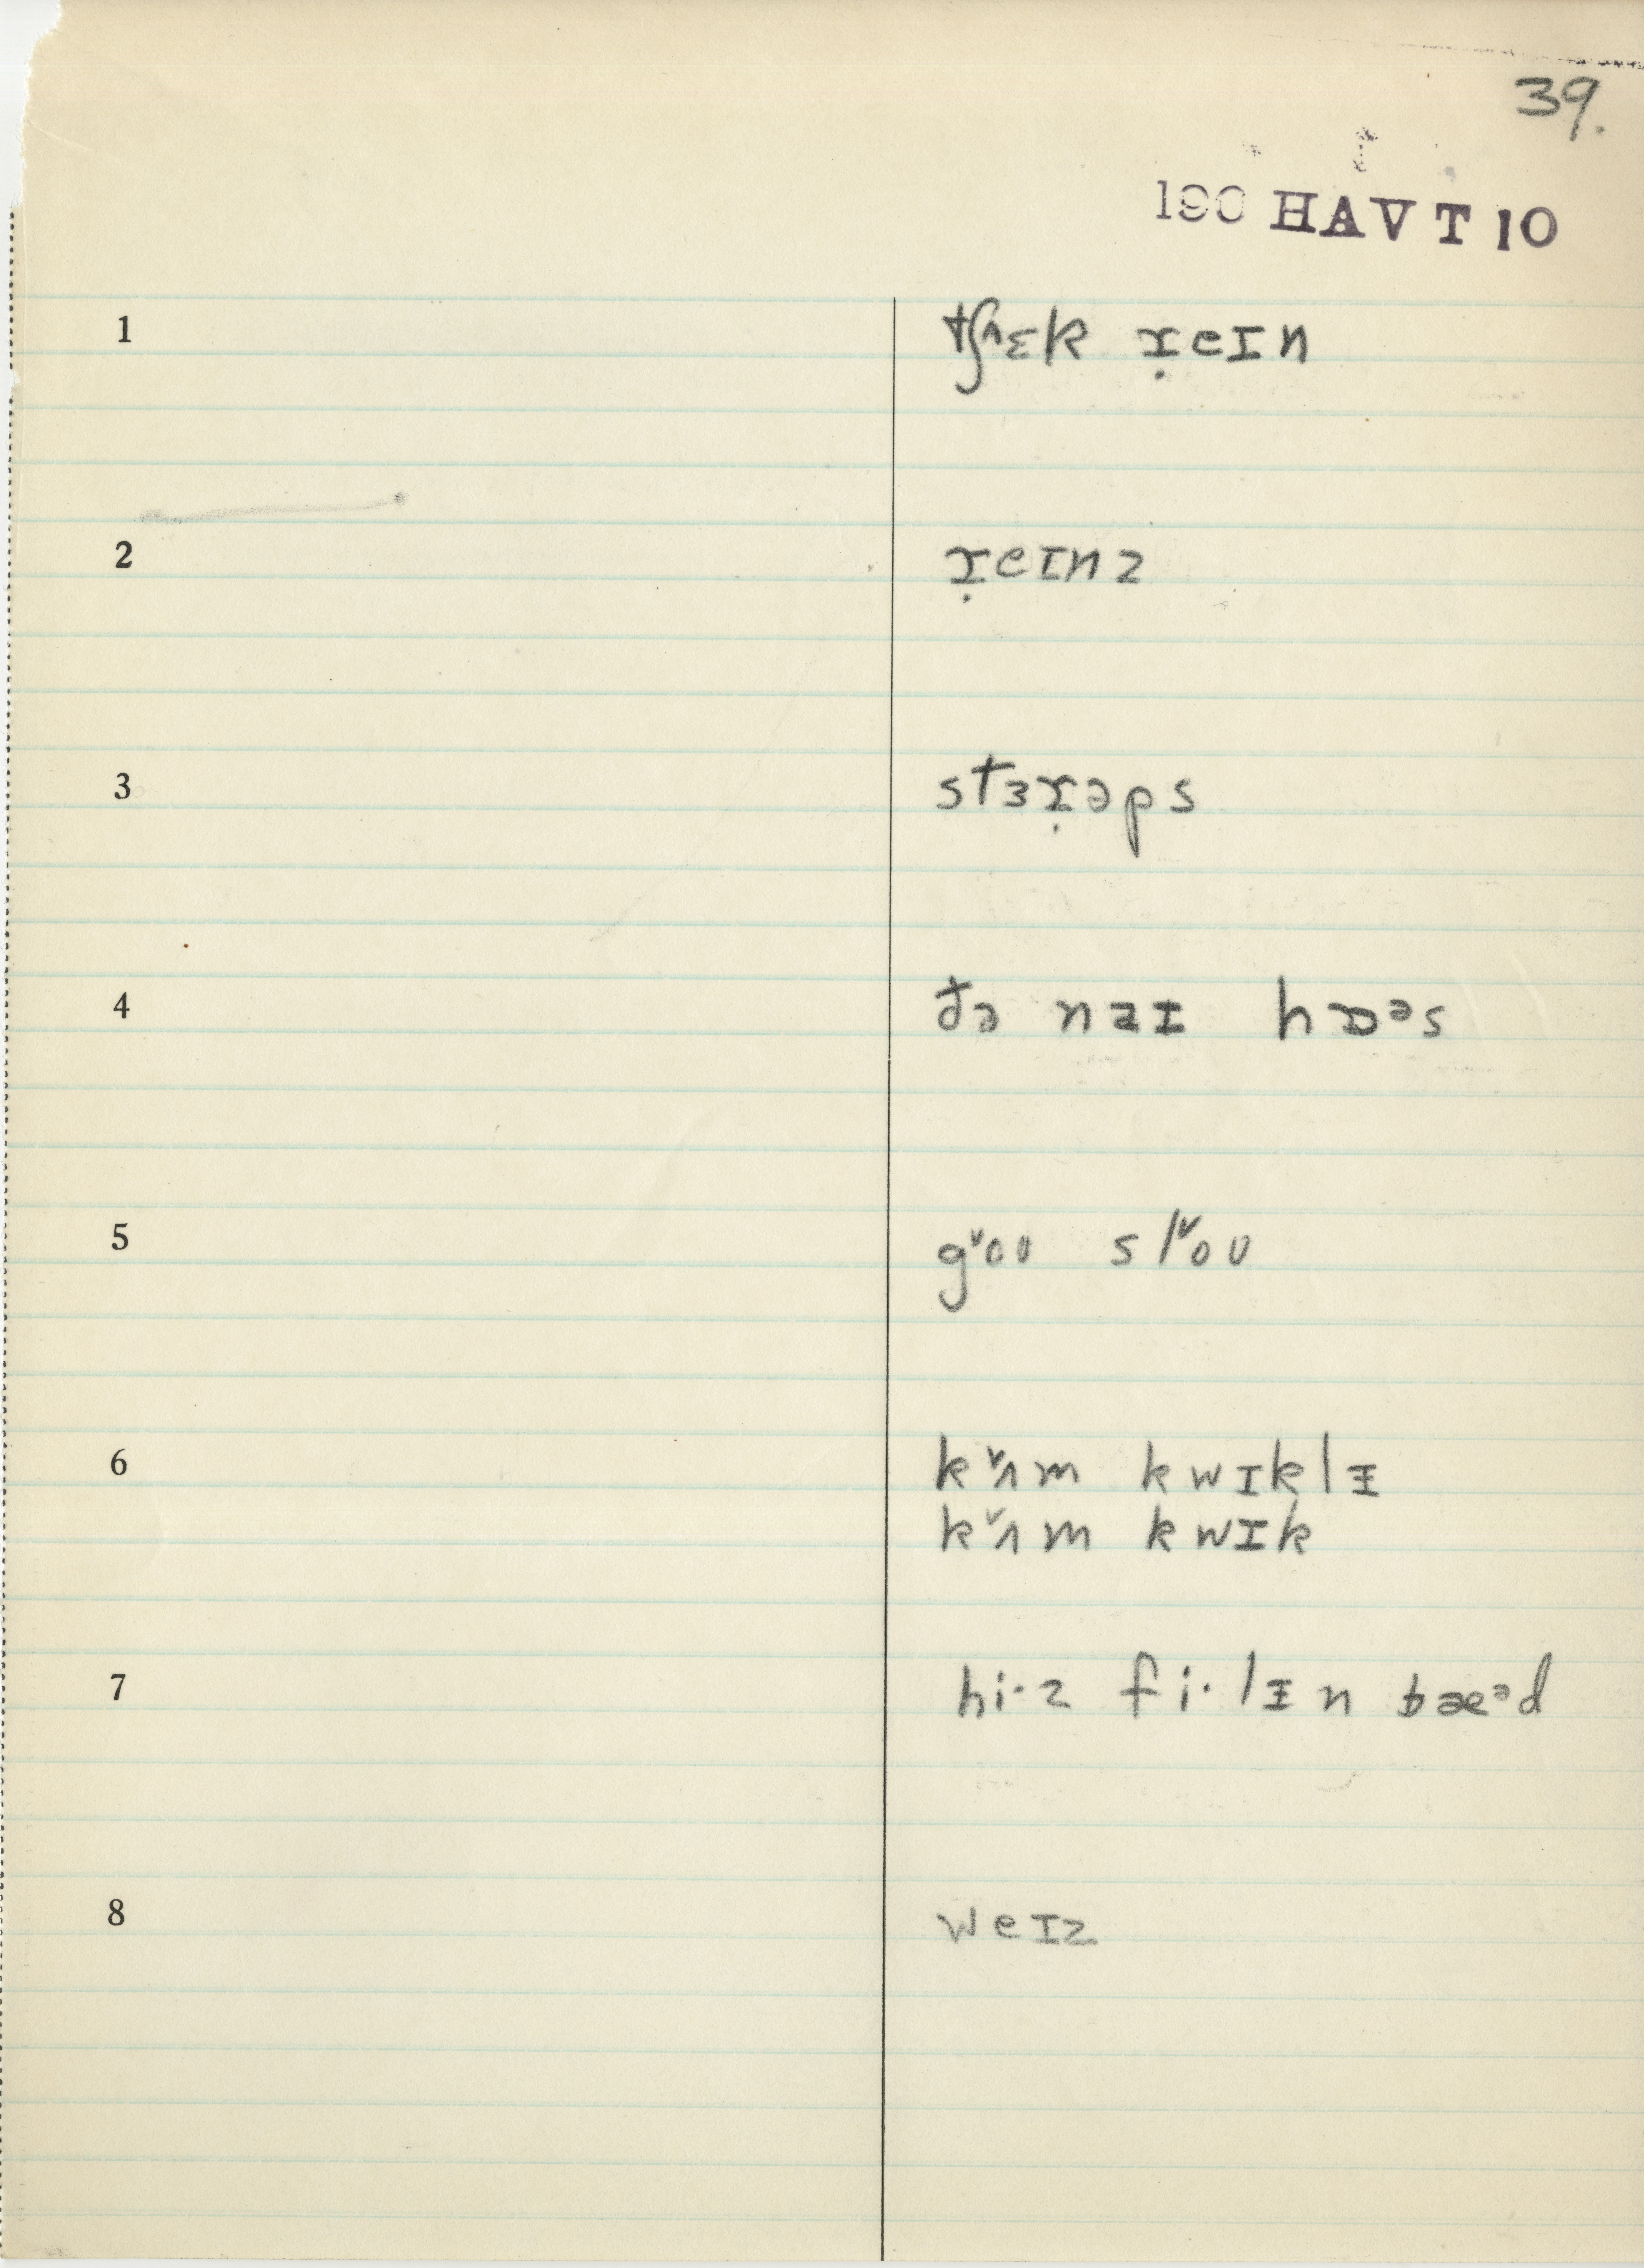 39.
190 HAVT 10
1 tʃ˄ɛk ɪ̣eɪn
2 ɪ̣eɪnz
3 stɜɪ̣əps
4 ðə naɪ hɒᵊs
5 g˅oʊ sl˅oʊ
6 k˅ʌm kwɪklɪ
k˅ʌm kwɪk
7 hi·z fi·lɪn bæᵊd
8 weɪz